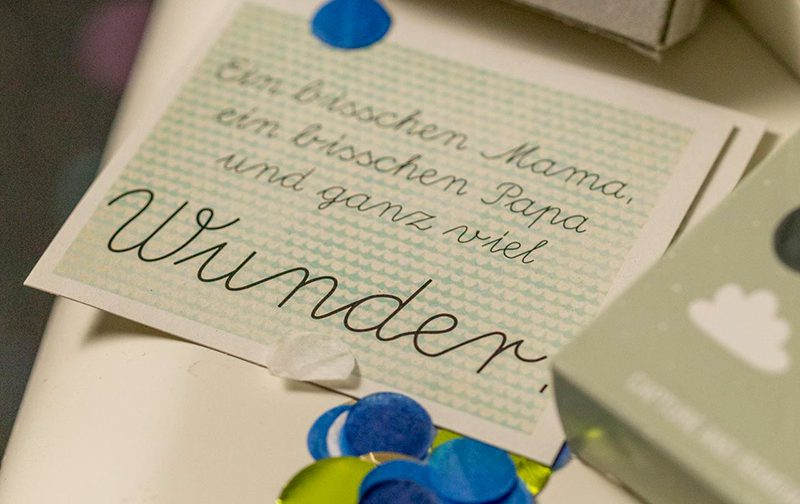 Ein bisschen Mama,
ein bisschen Papa
und ganz viel
Wunder.
CAPTURE AND